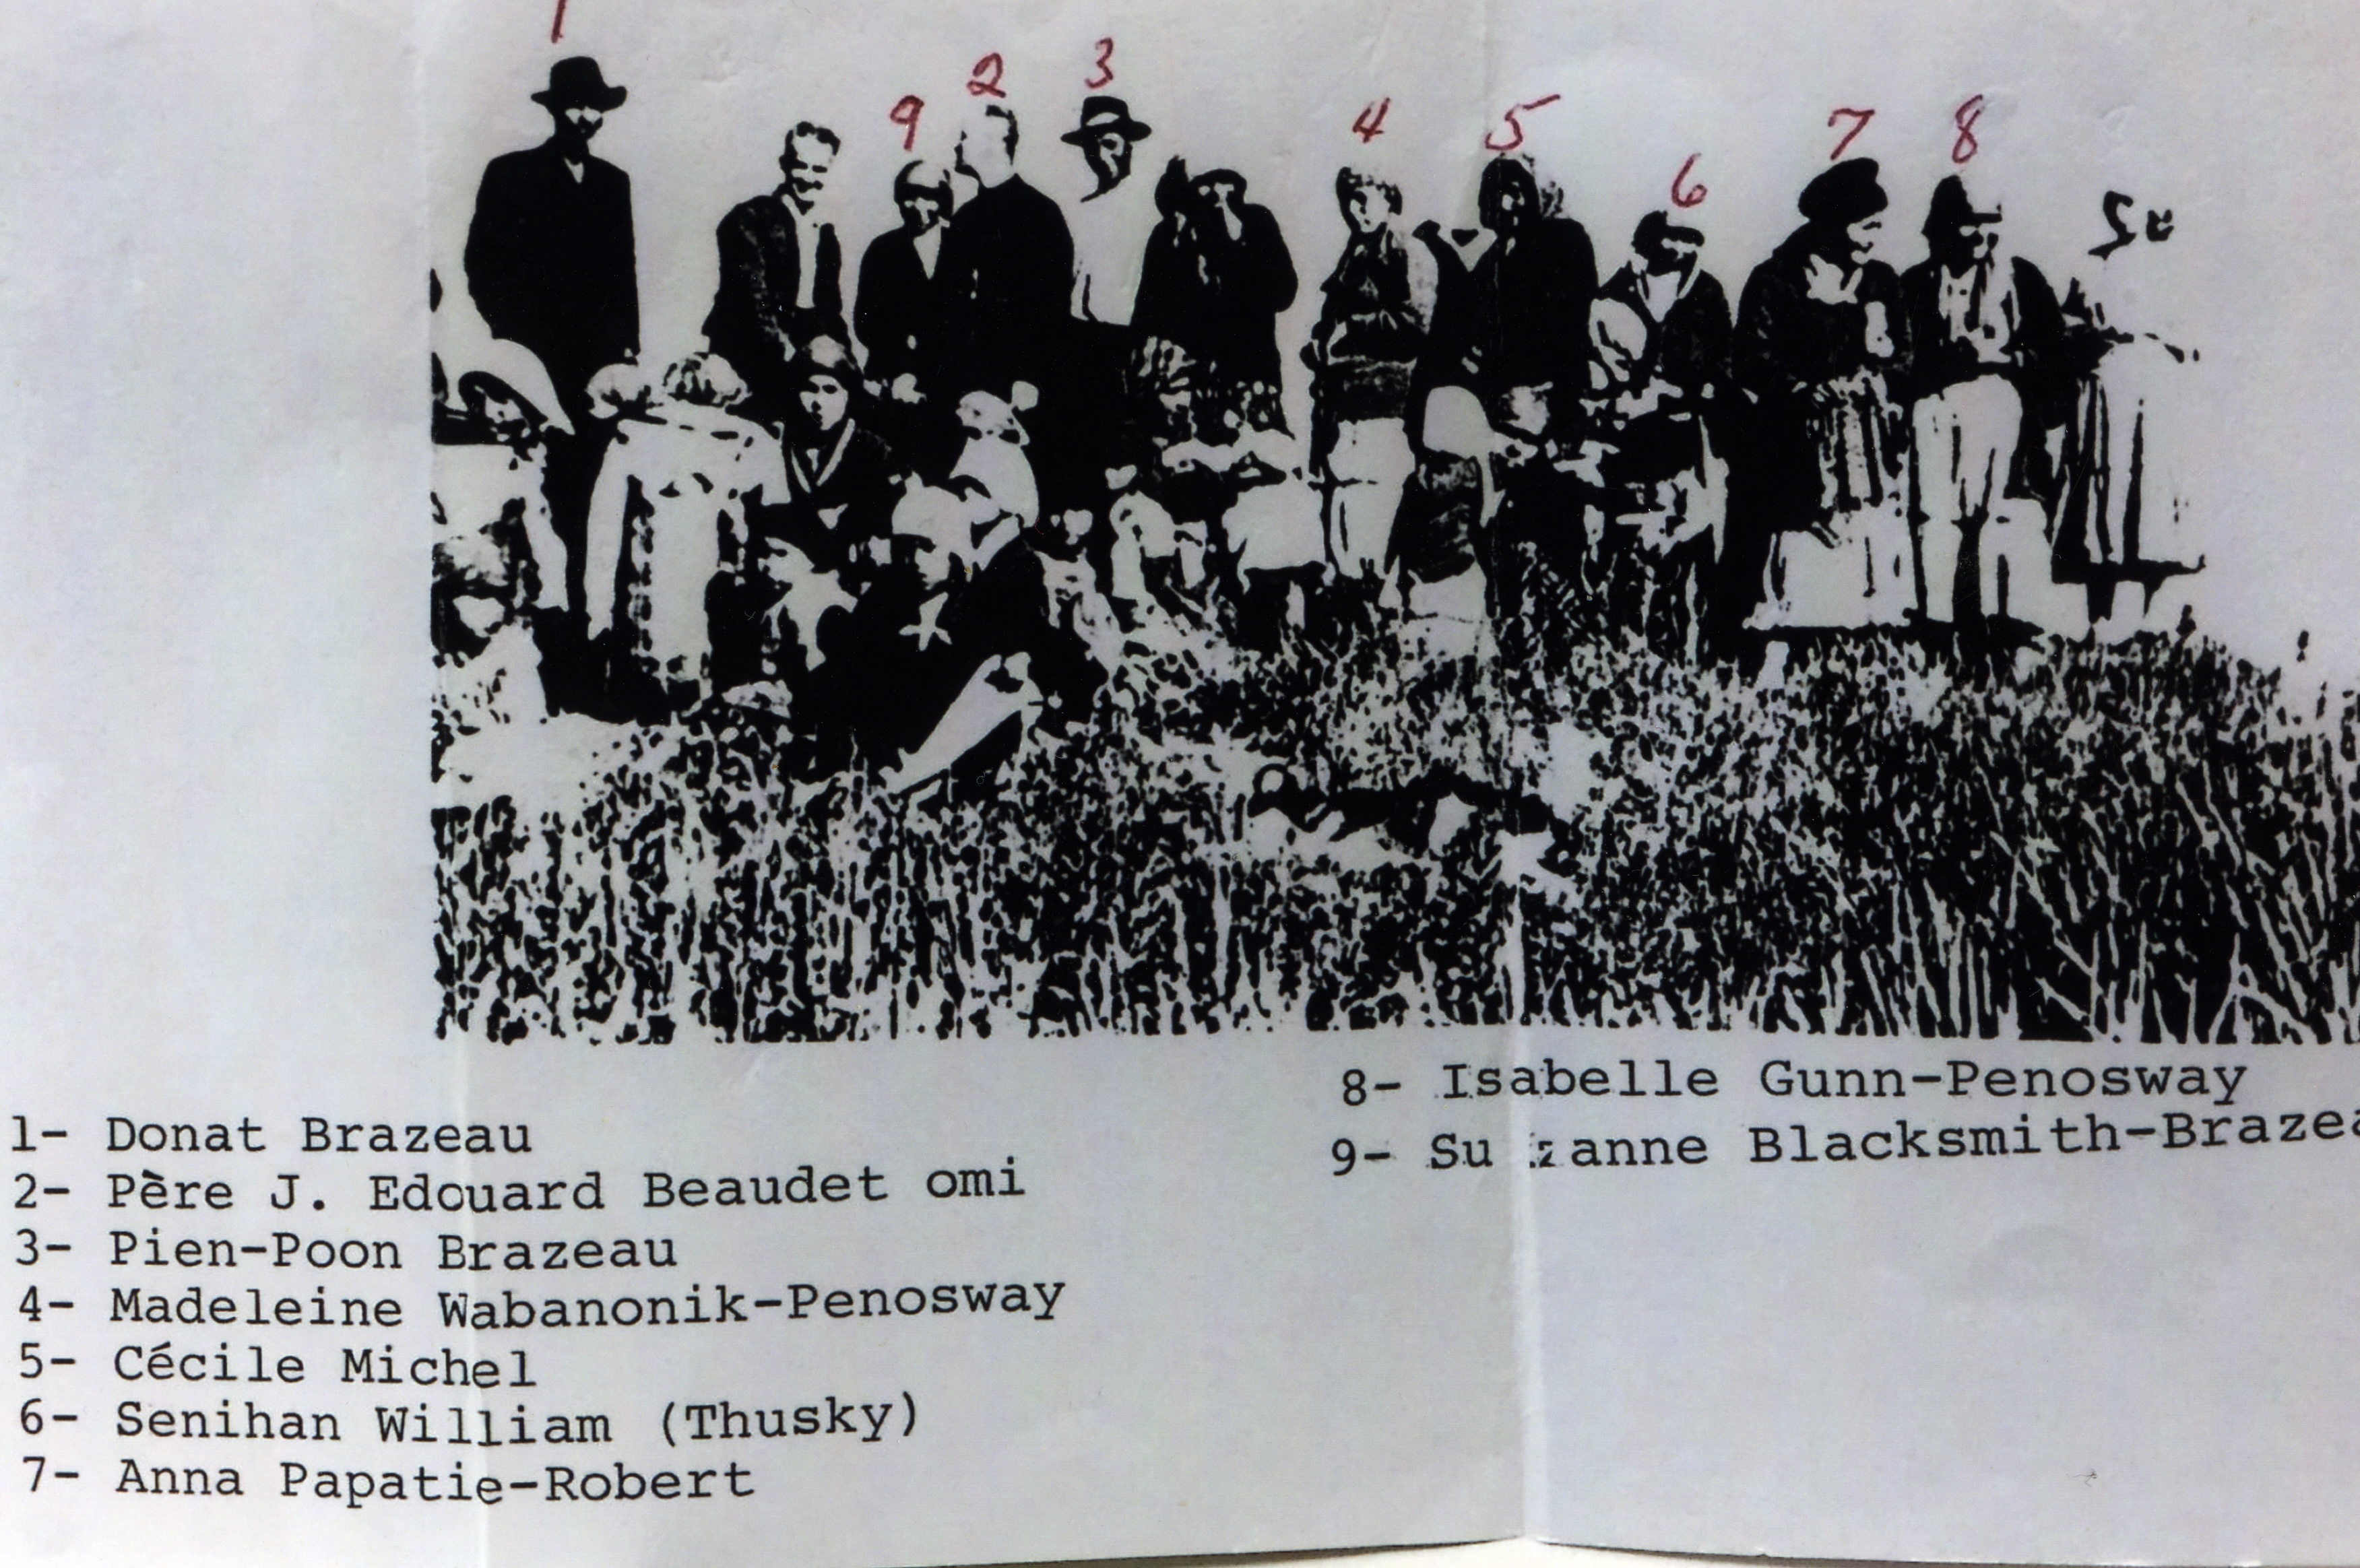 1
2
3
9
4
5
6
7
8
1- Donat Brazeau
2- Père J. Edouard Beaudet omi
3- Pien-Poon Brazeau
4- Madeleine Wabanonik-Penosway
5- Cécile Michel
6- Senihan William (Thusky)
7- Anna Papatie-Robert
8- Isabelle Gunn-Penosway
9- Su zanne Blacksmith-Brazea